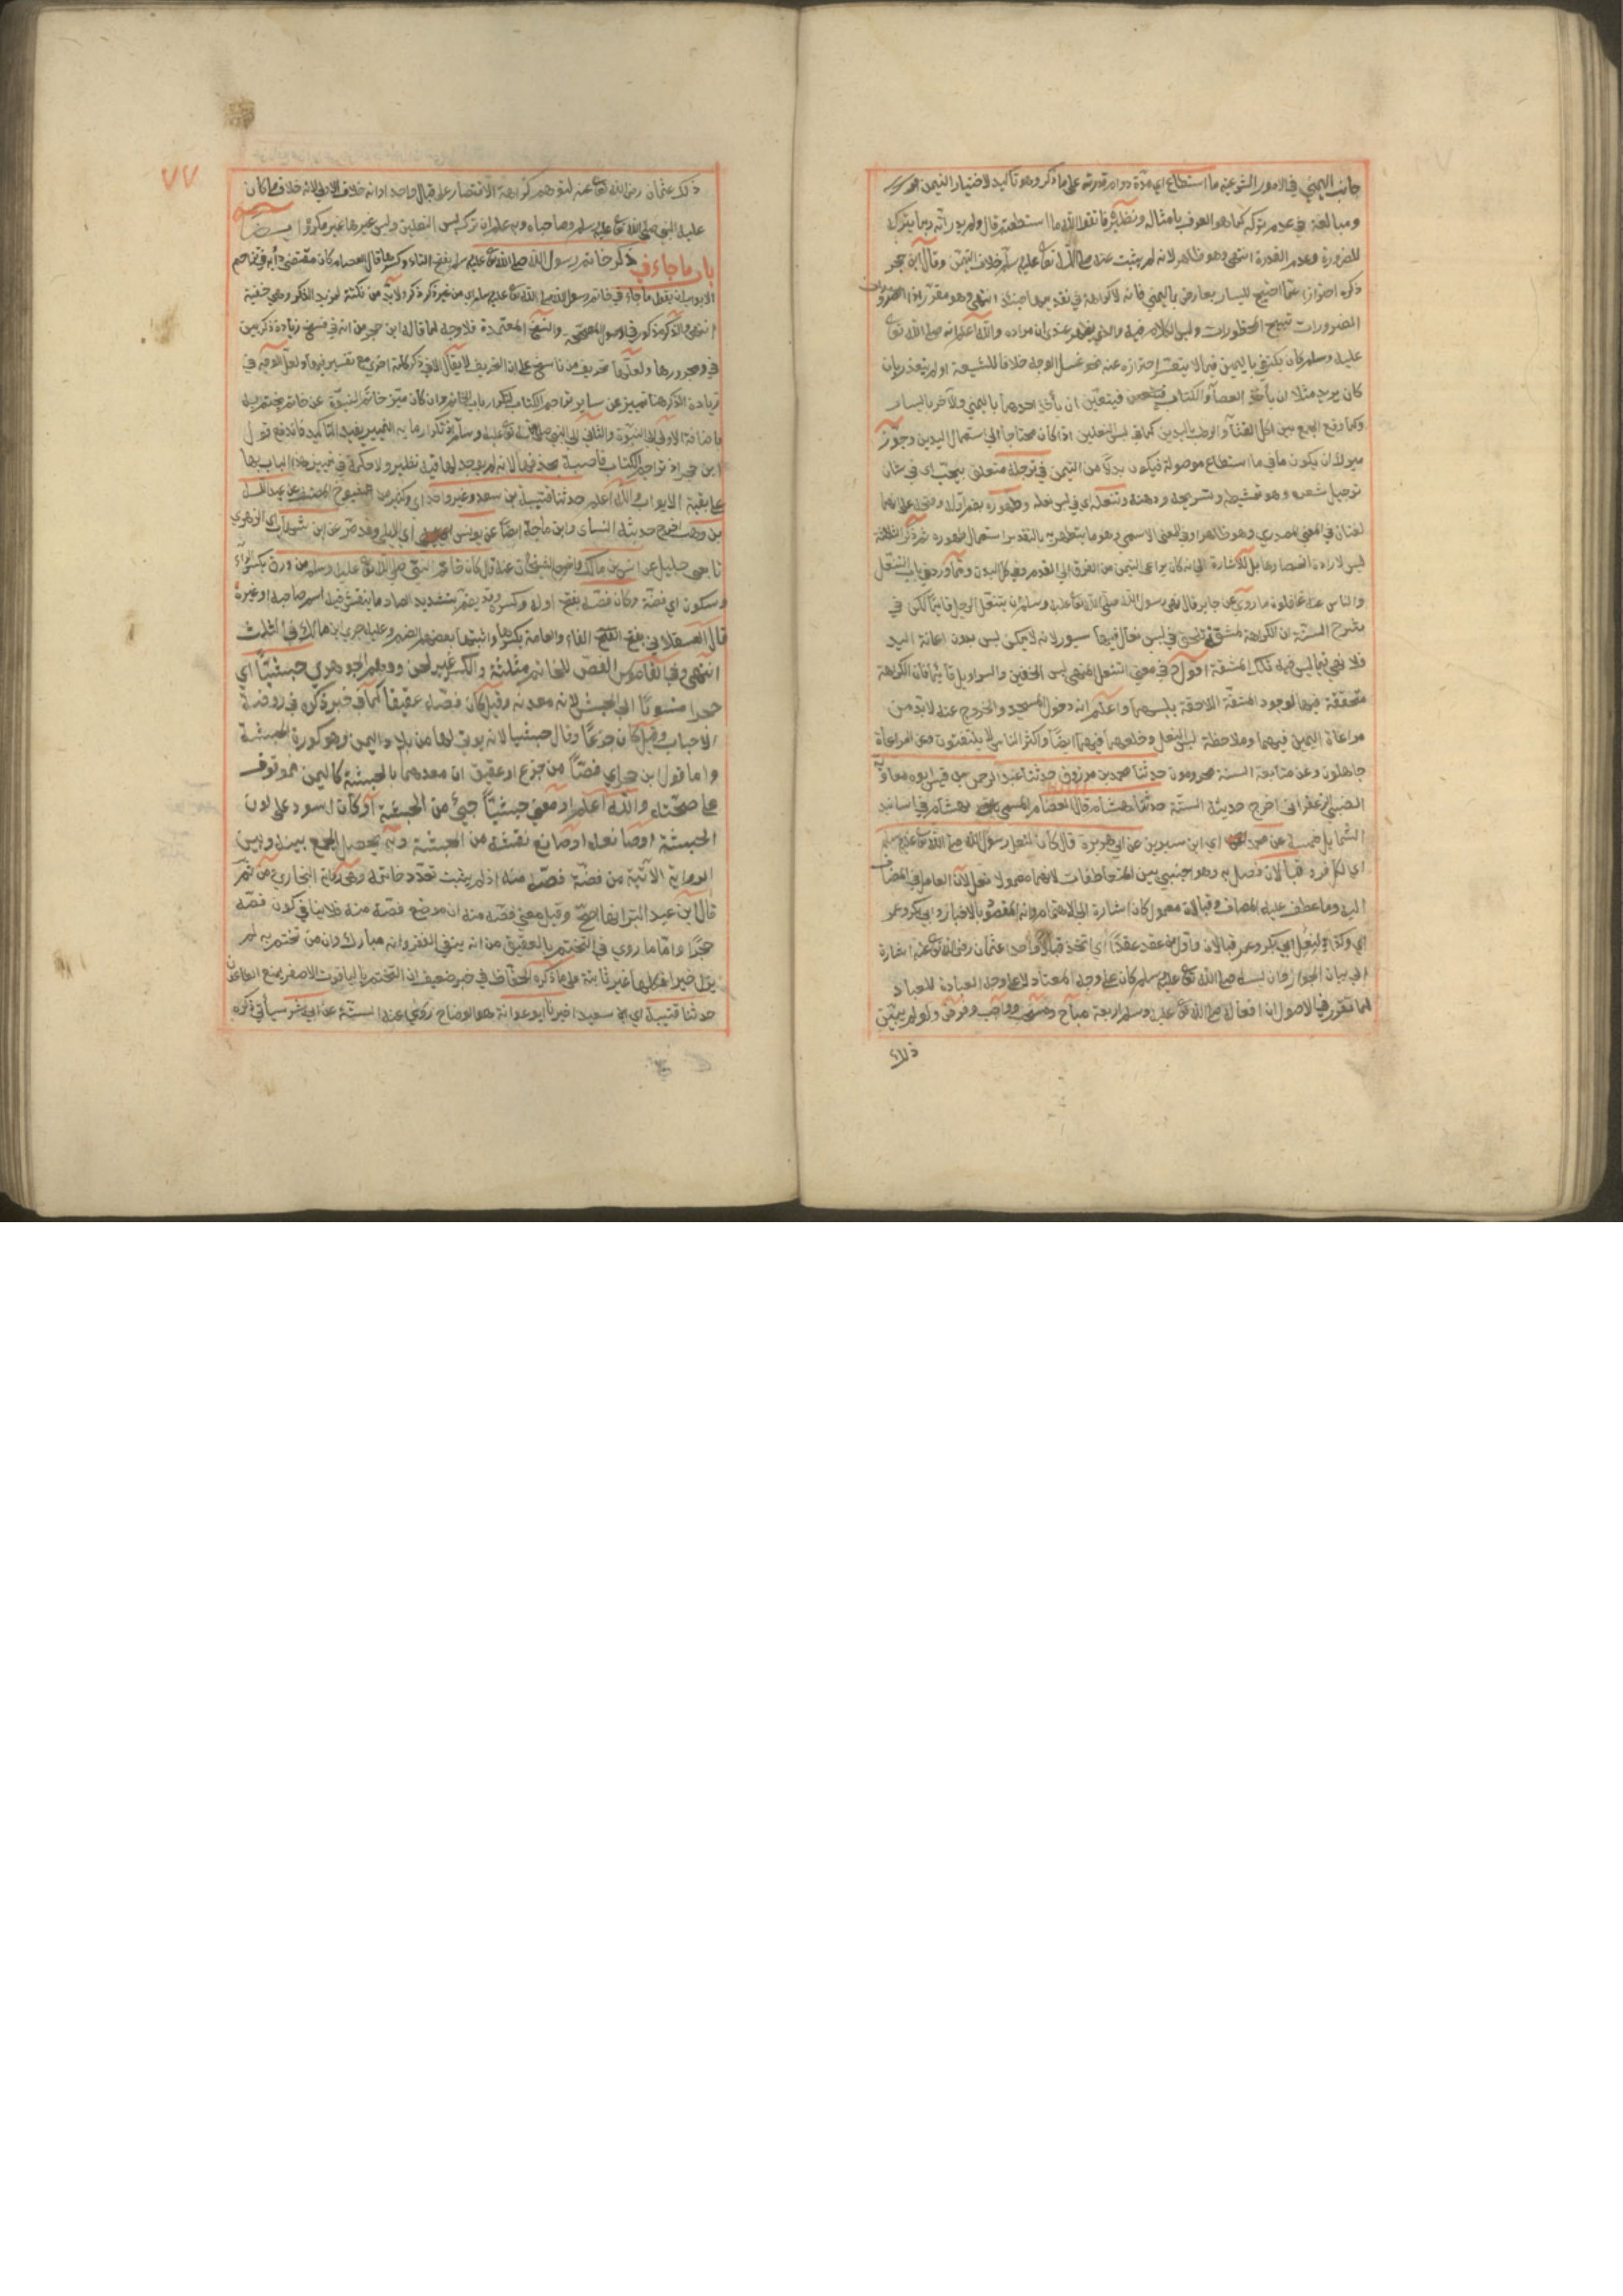 جانب اليمني في الامور الشرعية ما استطاع اي مدة دوام قدرته على ما ذكر وهو تأكيد لاختيار التيمن
ومبالغة في عدم تركه كما هو العرف بامثاله ونظيره فاتقوا الله ما استطعتم قال ولم يرد انه ربما يترك
للضرورة وعدم القدرة انتهى وهو ظاهر لانه لم يثبت عنه صلى الله تعالى عليه وسلم خلاف التيمن وقال ابن حجر
ذكره احترازا عما احتيج لليسار بعارض باليمني فانه لا كراهة في تقديمها حينئذ انتهى وهو مقرر اذ الضرورات
الضرورات تبيح المحظورات وليس الكلام فيه والذي يظهر عندي ان مراده والله اعلم انه صلى الله تعالى
عليه وسلم كان يكتفي باليمين فيما لا يتعسر احترازه عنه نحو غسل الوجه خلافا للشيعة او لم يتعذر بان
كان يريد مثلا ان يأخذ العصا والكتاب فيتعين ان يأخذ احدهما باليمني والآخر باليسار
وكما وقع الجمع بين اكل القثآ والرطب باليدين كما في لبس النعلين اذا كان محتاجا الي استعمال اليدين وجوز
ميرك ان يكون ما في ما استطاع موصولة فيكون بدلا من التيمن في ترجله متعلق بيحب اي في شان
ترجيل شعره وهو تمشيطه وتسريحه ودهنه وتنعله اي في لبس نعله وطهوره بضم اوله وفتحه على انهما
لغتان في المعني المصدري وهو ظاهر او في المعني الاسمي وهو ما يتطهر به بالتقدير استعمال طهوره ثم ذكر الثلاثة
ليس لارادة انحصارها بل للاشارة الي انه كان يراعي التيمن من الفرق الي القدم وفي كل البدن ومما ورد في باب التنعل
والناس عنه غافلون ما روي عن جابر قال نهى رسول الله صلى الله تعالى عليه وسلم ان ينتعل الرجل قائما لكن في
شرح السنة ان الكراهة لمشقة تلحق في لبس نعال فيها سيور لانه لا يمكن لبس بدون اعانة اليد
فلا نهي فيما ليس فيه تلك المشقة اقول في معني التنعل المنهي لبس الخفين والسراويل قائما فان الكراهة
متحققة فيها لوجود المشقة اللاحقة بلبسهما واعلم انه دخول المسجد والخروج عنه لا بد من
مراعاة اليمين فيهما وملاحظة لبس النعل وخلعهما فيهما ايضا واكثر الناس لا يلتفتون وعن مراعاة
جاهلون وعن متابعة السنة محرومون حدثنا محمد بن مرزوق حدثنا عبد الرحمن بن قيس ابو معاوية
الضبي الزعفراني اخرج حديثه الستة حدثنا هشام قال العصام المسمى بهشام في اسانيد
الشمايل خمسة عن محمد اي ابن سيرين عن ابي هريرة قال كان لنعل رسول الله صلى الله تعالى عليه وسلم
اي لكل فرد قبالان فصل به وهو اجنبي بين المتعاطفات لانهما معمولا نعل لان العامل في المضاف
اليه وما عطف عليه المضاف وقبالان معمول كان اشارة الي الاهتمام وانه المقصود بالاخبار وابي بكر وعمر
اي وكذا لنعل ابي بكر وعمر قبالان واول من عقد عقدا اي اتخذ قبالا واحدا عثمان رضي الله تعالى عنه اشارة
الي بيان الجواز وان لبسه صلى الله تعالى عليه وسلم كان على وجه المعتاد لا على وجه العبادة للعباد
لما تقرر في الاصول ان افعاله صلى الله تعالى عليه وسلم اربعة مباح ومستحب وواجب وفرض ولو لم يبين
ذلك
٧٧
ذلك عثمان رضي الله تعالى عنه لتوهم كراهة الاقتصار على قبال واحد او انه خلاف الاولى لانه خلاف ما كان
عليه النبي صلى الله تعالى عليه وسلم وصاحباه وبه علم ان ترك لبس النعلين ولبس غيرها غير مكروه ايضا
باب ما جاء في ذكر خاتم رسول الله صلى الله تعالى عليه وسلم بفتح التاء وكسرها قال العصام كان مقتضى دأبه في تراجم
الابواب ان يقول ما جاء في خاتم رسول الله صلى الله تعالى عليه وسلم اي من غير ذكر ذكر ولا بد من نكتة لمزيد الذكر وهي خفية
انتهى والذكر مذكور في الاصول المصححة والنسخ المعتمدة فلا وجه لما قاله ابن حجر من انه في نسخ زيادة ذكر بين
في ومجرورها ولعلها تحريف من ناسخ على ان التحريف لا يقال الا في ذكر كلمة اخرى مع تفسير فيها ولعل الوجه في
زيادة الذكر هنا تمييز عن ساير تراجم الكتاب لتكرار باب الخاتم وان كان ميز خاتم النبوة عن خاتم يختم به
باضافة الاول الى النبوة والثاني الى النبي صلى الله تعالى عليه وسلم وتكرار ما به التمييز يفيد التأكيد فاندفع قول
ابن حجر اذ تراجم الكتاب قاضية بحذفها لانه لم يوجد لها فيه نظير ولا حكمة في تمييز هذا الباب بها
على بقية الابواب والله اعلم حدثنا قتيبة بن سعيد وغير واحد اي وكثير من المشايخ عن عبد الله
بن وهب اخرج حديثه النسائ وابن ماجة ايضا عن يونس اي الايلي وقد مر عن ابن شهاب اي الزهري
تابعي جليل عن انس بن مالك رضي الله تعالى عنه قال كان خاتم النبي صلى الله تعالى عليه وسلم من ورق بكسر الراء
وسكون اي فضة وكان فصه بفتح اوله وكسره وقد يضم بتشديد الصاد ما ينقش فيه اسم صاحبه او غيره
قال العسقلاني بفتح الفاء والعامة بكسرها واثبتها بعضهم الضم وعليه جري ابن مالك في المثلث
انتهى وفي القاموس الفص للخاتم مثلثة والكسر غير لحن ووهم الجوهري حبشيا اي
حجرا منسوبا الي الحبش لانه معدنه وقيل كان فصه عقيقا كما في خبر ذكره في روضة
الاحباب وقيل كان جزعا وقال حبشيا لانه يوتى بها من بلاد اليمن وهو كورة الحبشة
واما قول ابن حجر اي فصا من جزع او عقيق ان معدنهما بالحبشة كاليمن فموقوف
على صحته والله اعلم او معني حبشيا جيئ من الحبشة او كان اسود على لون
الحبشة او صانعه او صانع نقشه من الحبشة وبه يحصل الجمع بينه وبين
الرواية الآتية من فضة فصه منه اذ لم يثبت تعدد خاتمه وهي رواية البخاري ومن ثم
قال ابن عبد البر انها اصح وقيل معني فصه منه ان موضع فصه منه فلا ينافي كون فصه
حجرا واما ما روي في التختم بالعقيق من انه ينفي الفقر وانه مبارك وان من تختم به لم
يزل خيرا فكلها غير ثابتة على ما ذكره الحفاظ في خبر ضعيف ان التختم بالياقوت الاصفر يمنع الطاعون
حدثنا قتيبة اي ابن سعيد اخبرنا ابو عوانة هو الوضاح روي عنه الستة عن ابي بشر سيأتي ذكره